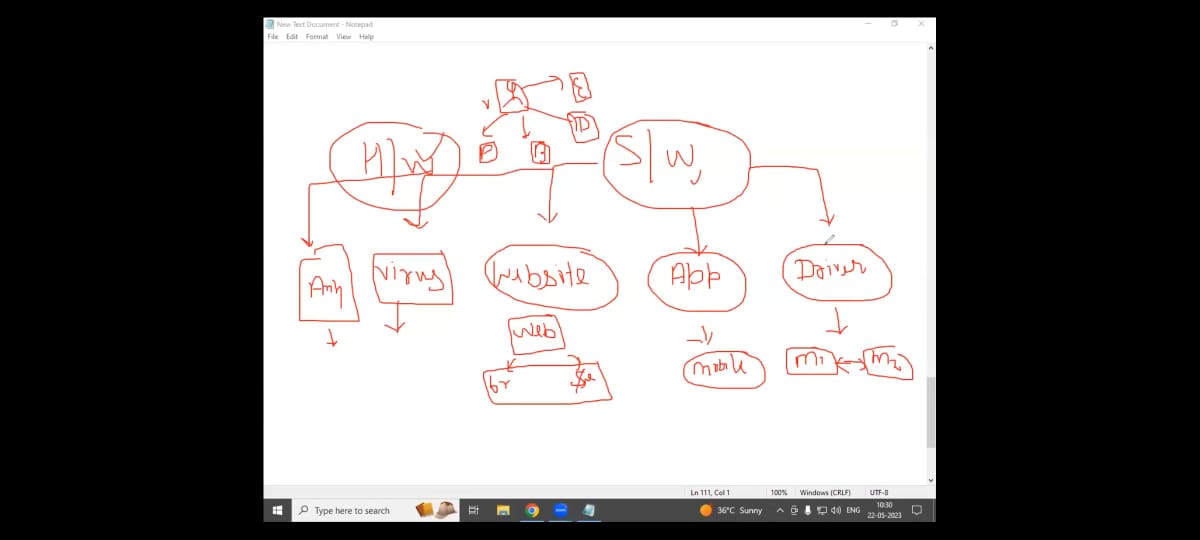 New Text Document - Notepad
File Edit Format View Help
E
ID
P
H/W
S/W
Virus
Website
App
Driver
Web
mobile
M1
M2
br
Ln 111, Col 1 100% Windows (CRLF) UTF-8
Type here to search
36°C Sunny
ENG
10:30
22-05-2023